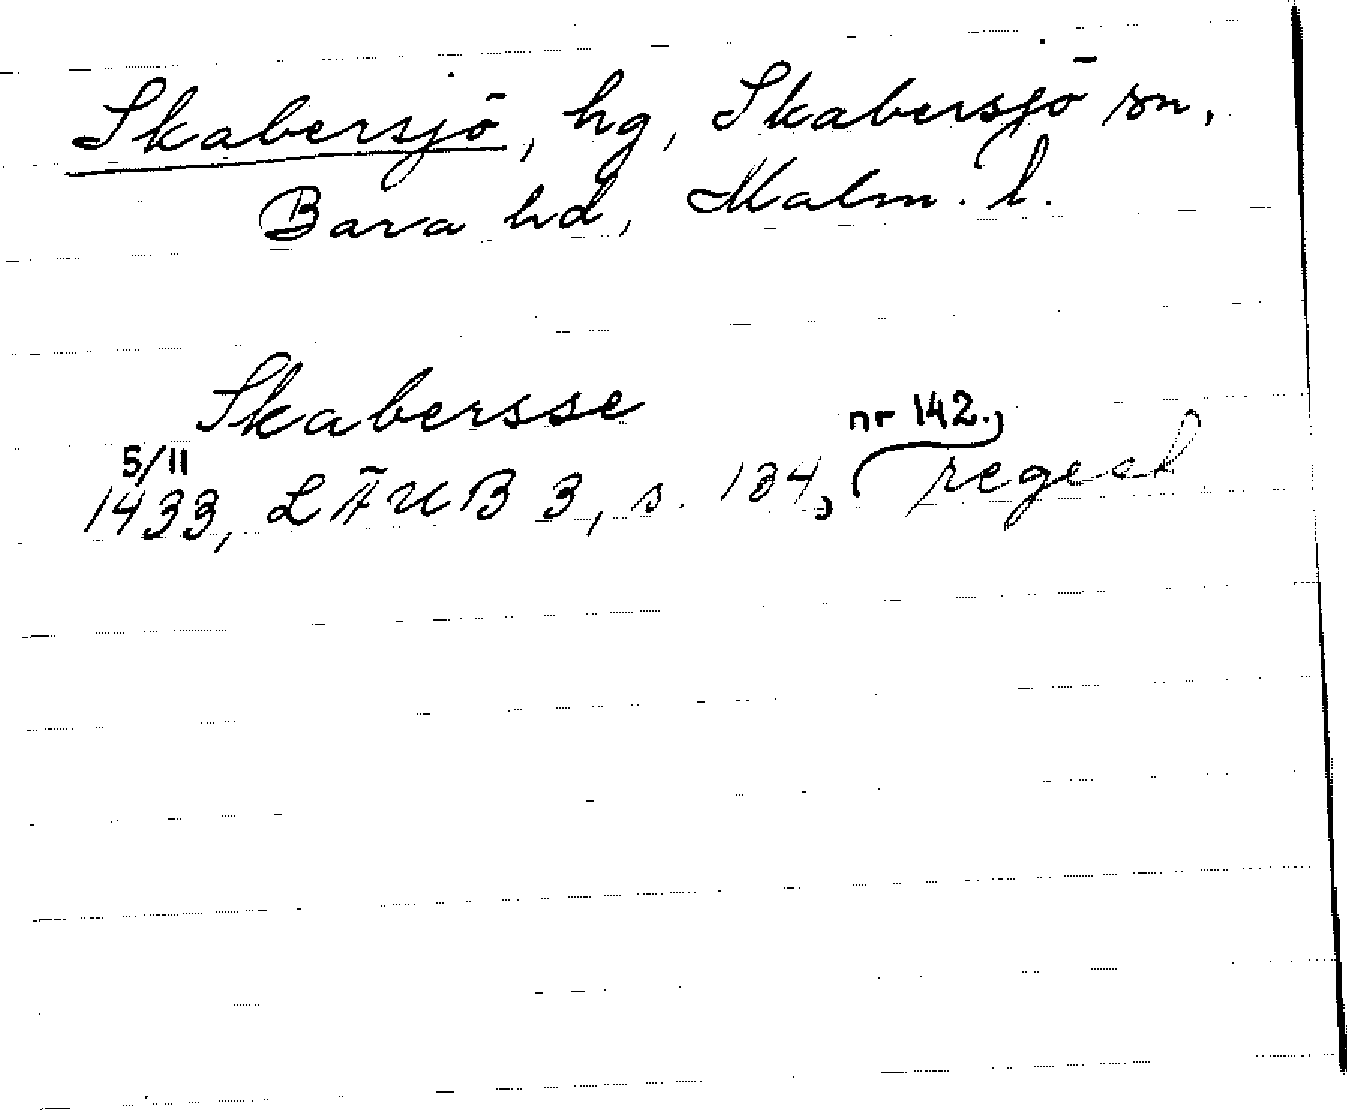 Skabersjö, hg, Skabersjö sn,
Bara hd, Malm. l.
Skabersse
5/11 nr 142.,
1433, LÄUB 3, s. 134, regest